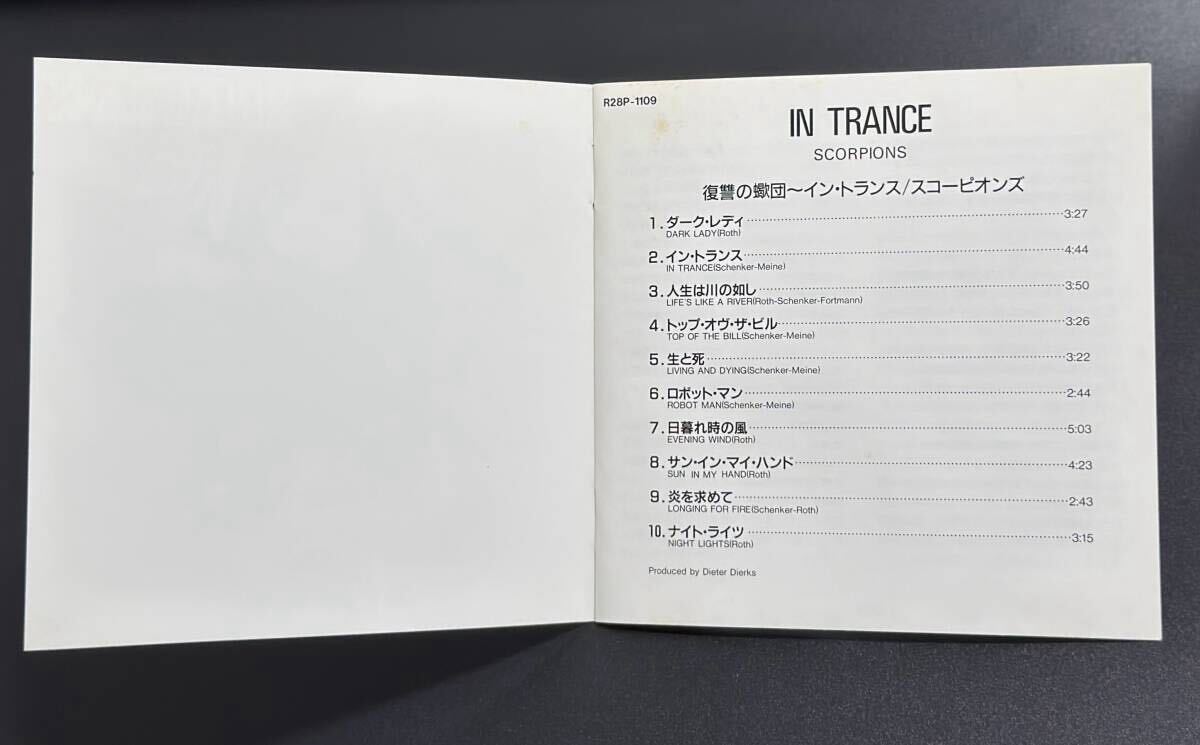 R28P-1109
IN TRANCE
SCORPIONS
復讐の蠍団〜イン・トランス/スコーピオンズ
1.ダーク・レディ……3:27
DARK LADY(Roth)
2.イン・トランス……4:44
IN TRANCE(Schenker-Meine)
3.人生は川の如し……3:50
LIFE'S LIKE A RIVER(Roth-Schenker-Fortmann)
4.トップ・オヴ・ザ・ビル……3:26
TOP OF THE BILL(Schenker-Meine)
5.生と死……3:22
LIVING AND DYING(Schenker-Meine)
6.ロボット・マン……2:44
ROBOT MAN(Schenker-Meine)
7.日暮れ時の風……5:03
EVENING WIND(Roth)
8.サン・イン・マイ・ハンド……4:23
SUN IN MY HAND(Roth)
9.炎を求めて……2:43
LONGING FOR FIRE(Schenker-Roth)
10.ナイト・ライツ……3:15
NIGHT LIGHTS(Roth)
Produced by Dieter Dierks